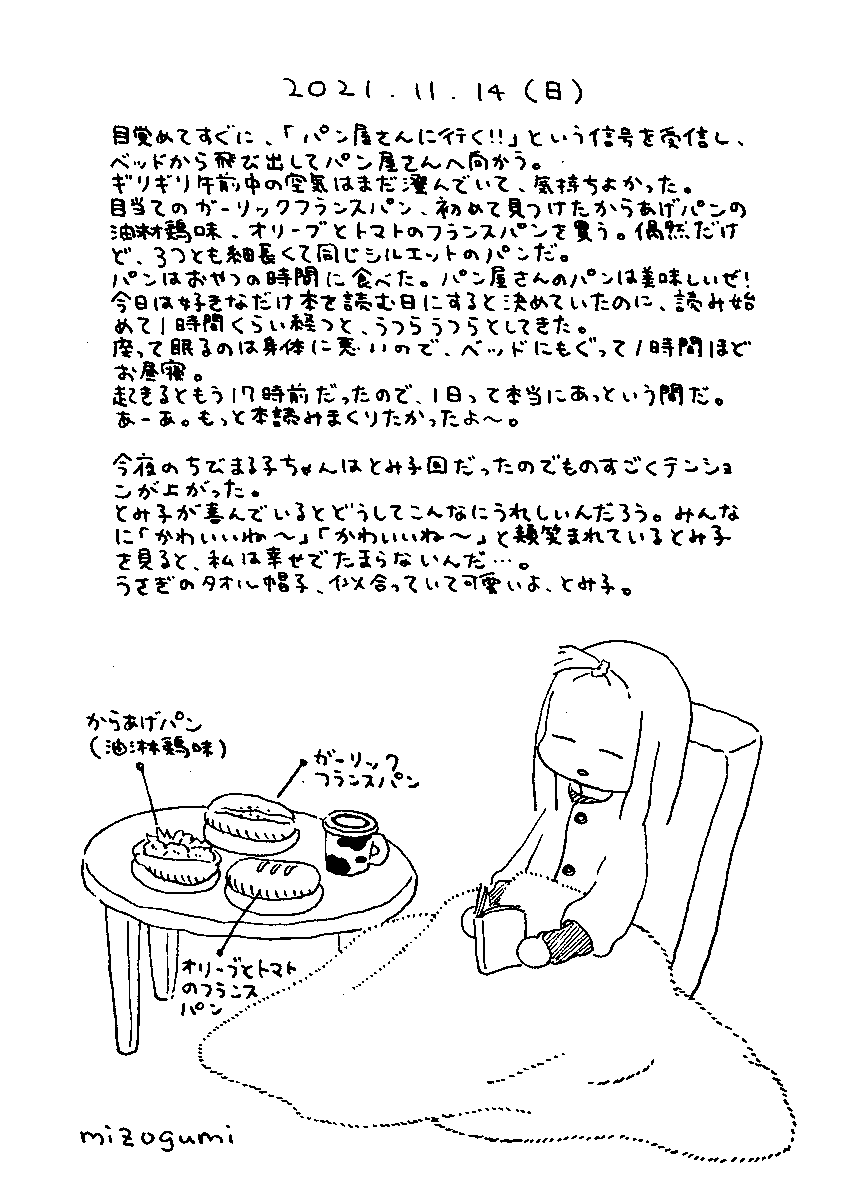 2021.11.14(日)
目覚めてすぐに、「パン屋さんに行く!!」という信号を受信し、
ベッドから飛び出してパン屋さんへ向かう。
ギリギリ午前中の空気はまだ澄んでいて、気持ちよかった。
目当てのガーリックフランスパン、初めて見つけたからあげパンの
油淋鶏味、オリーブとトマトのフランスパンを買う。偶然だけ
ど、3つとも細長くて同じシルエットのパンだ。
パンはおやつの時間に食べた。パン屋さんのパンは美味しいぜ!
今日は好きなだけ本を読む日にすると決めていたのに、読み始
めて1時間くらい経つと、うつらうつらとしてきた。
座って眠るのは身体に悪いので、ベッドにもぐって1時間ほど
お昼寝。
起きるともう17時前だったので、1日って本当にあっという間だ。
あーあ。もっと本読みまくりたかったよ〜。
今夜のちびまる子ちゃんはとみ子回だったのでものすごくテンショ
ンが上がった。
とみ子が喜んでいるとどうしてこんなにうれしいんだろう。みんな
に「かわいいね〜」「かわいいね〜」と頬笑まれているとみ子
を見ると、私は幸せでたまらないんだ…。
うさぎのタオル帽子、似合っていて可愛いよ、とみ子。
からあげパン
(油淋鶏味)
ガーリック
フランスパン
オリーブとトマト
のフランス
パン
mizogumi